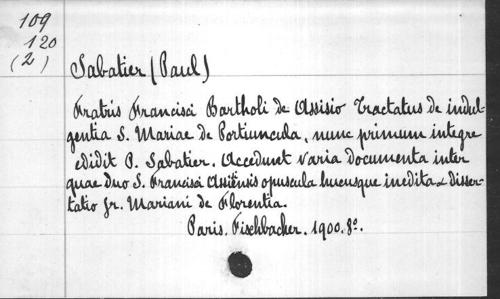 109
120
(2)
Sabatier (Paul)
Fratris Francisci Bartholi de Assisio Tractatus de indul-
gentia S. Mariae de Portiuncula, nunc primum integre
edidit P. Sabatier. Accedunt varia documenta inter
quae duo S. Francisci Assisiensis opuscula hucusque inedita & disser-
tatio fr. Mariani de Florentia.
Paris. Fischbacher. 1900. 8º.